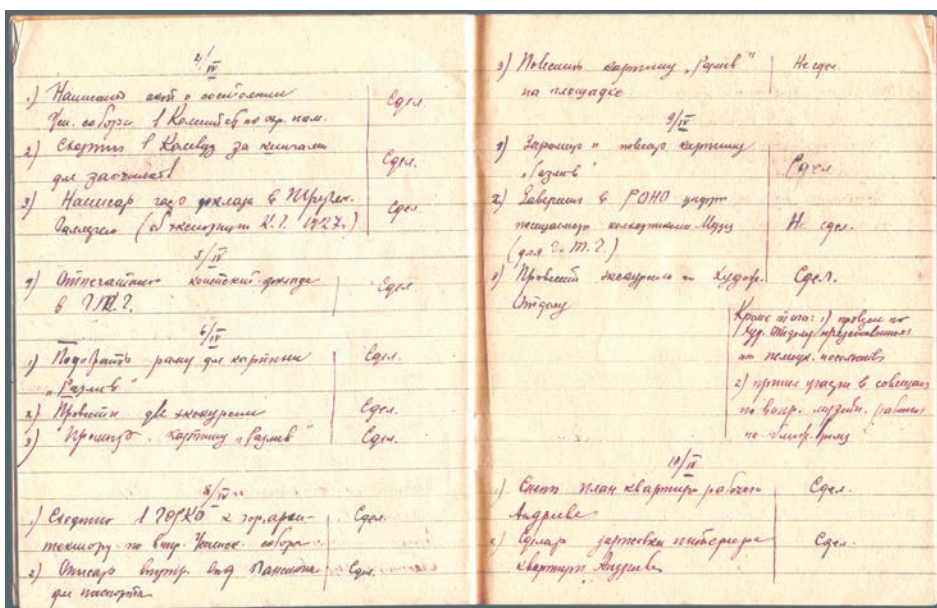 4/IV
1) Написать акт о состоянии
Усп. собора в Комитет по охр. пам.
Сдел.
2) Сходить в Комвуз за книгами
для заочников
Сдел.
3) Написать доклад в
Галлерею 1927г.)
Сдел.
5/IV
1) Отпечатать конспект доклада
в
Сдел
6/IV
1) Подобрать раму для картины
„Разлив"
Сдел.
2) Провести две экскурсии
Сдел.
3) картину „Разлив"
Сдел.
8/IV
1) Сходить в ГОРКО к гор. архи-
тектору по вопр. Успенск. собора
Сдел.
2) Описать внутр. вид
для паспорта
Сдел.
3) Повесить картину „Разлив"
на площадке
Не сдел
9/IV
1) и повесить картину
„Разлив"
Сдел
2) Заверить в РОНО
посещаемости экскурсиями Музея
(для
Не сдел.
3) Провести экскурсию по Худож.
Отделу
Сдел.
Кроме того: 1) провел по
худ. отделу представителя
от немецк. посольства
2) принял участие в совещан
по вопр. музейн. работы
10/IV
1) Снять план квартиры рабочего
Андреева
Сдел.
2) Сделать зарисовки интерьера
квартиры Андреева
Сдел.